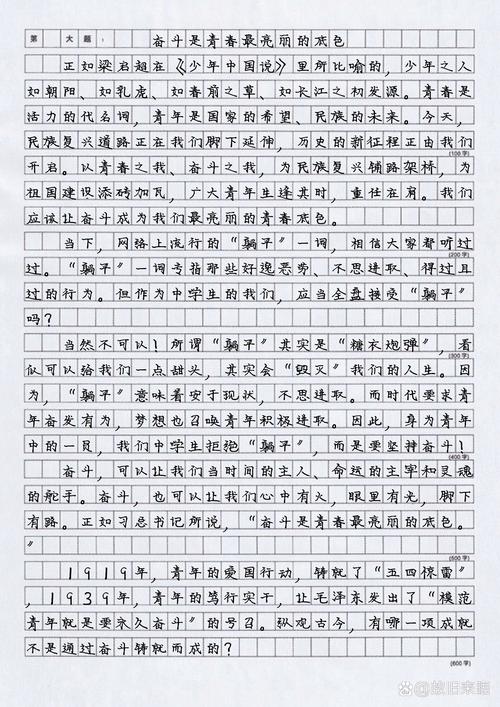 第 大题：
奋斗是青春最亮丽的底色
正如梁启超在《少年中国说》里所比喻的，少年之人
如朝阳、如乳虎、如春前之草、如长江之初发源。青春是
活力的代名词，青年是国家的希望、民族的未来。今天，
民族复兴道路正在我们脚下延伸，历史的新征程正由我们
(100字)
开启。以青春之我、奋斗之我，为民族复兴铺路架桥，为
祖国建设添砖加瓦，广大青年生逢其时，重任在肩。我们
应该让奋斗成为我们最亮丽的青春底色。
当下，网络上流行的“躺子”一词，相信大家都听过
(200字)
过。“躺子”一词专指那些好逸恶劳、不思进取、得过且
过的行为。但作为中学生的我们，应当全盘接受“躺子”
吗？
当然不可以！所谓“躺子”其实是“糖衣炮弹”，看
(300字)
似可以给我们一点甜头，其实会“毁灭”我们的人生。因
为，“躺子”意味着安于现状，不思进取。而时代要求青
年奋发有为，梦想也召唤青年积极进取。因此，身为青年
中的一员，我们中学生拒绝“躺子”，而是要坚持奋斗！
(400字)
奋斗，可以让我们当时间的主人、命运的主宰和灵魂
的舵手。奋斗，也可以让我们心中有火，眼里有光，脚下
有路。正如习总书记所说，“奋斗是青春最亮丽的底色。
”
(500字)
1919年，青年的爱国行动，铸就了“五四惊雷”
，1939年，青年的笃行实干，让毛泽东发出了“模范
青年就是要永久奋斗”的号召。纵观古今，有哪一项成就
不是通过奋斗铸就而成的？
(600字)